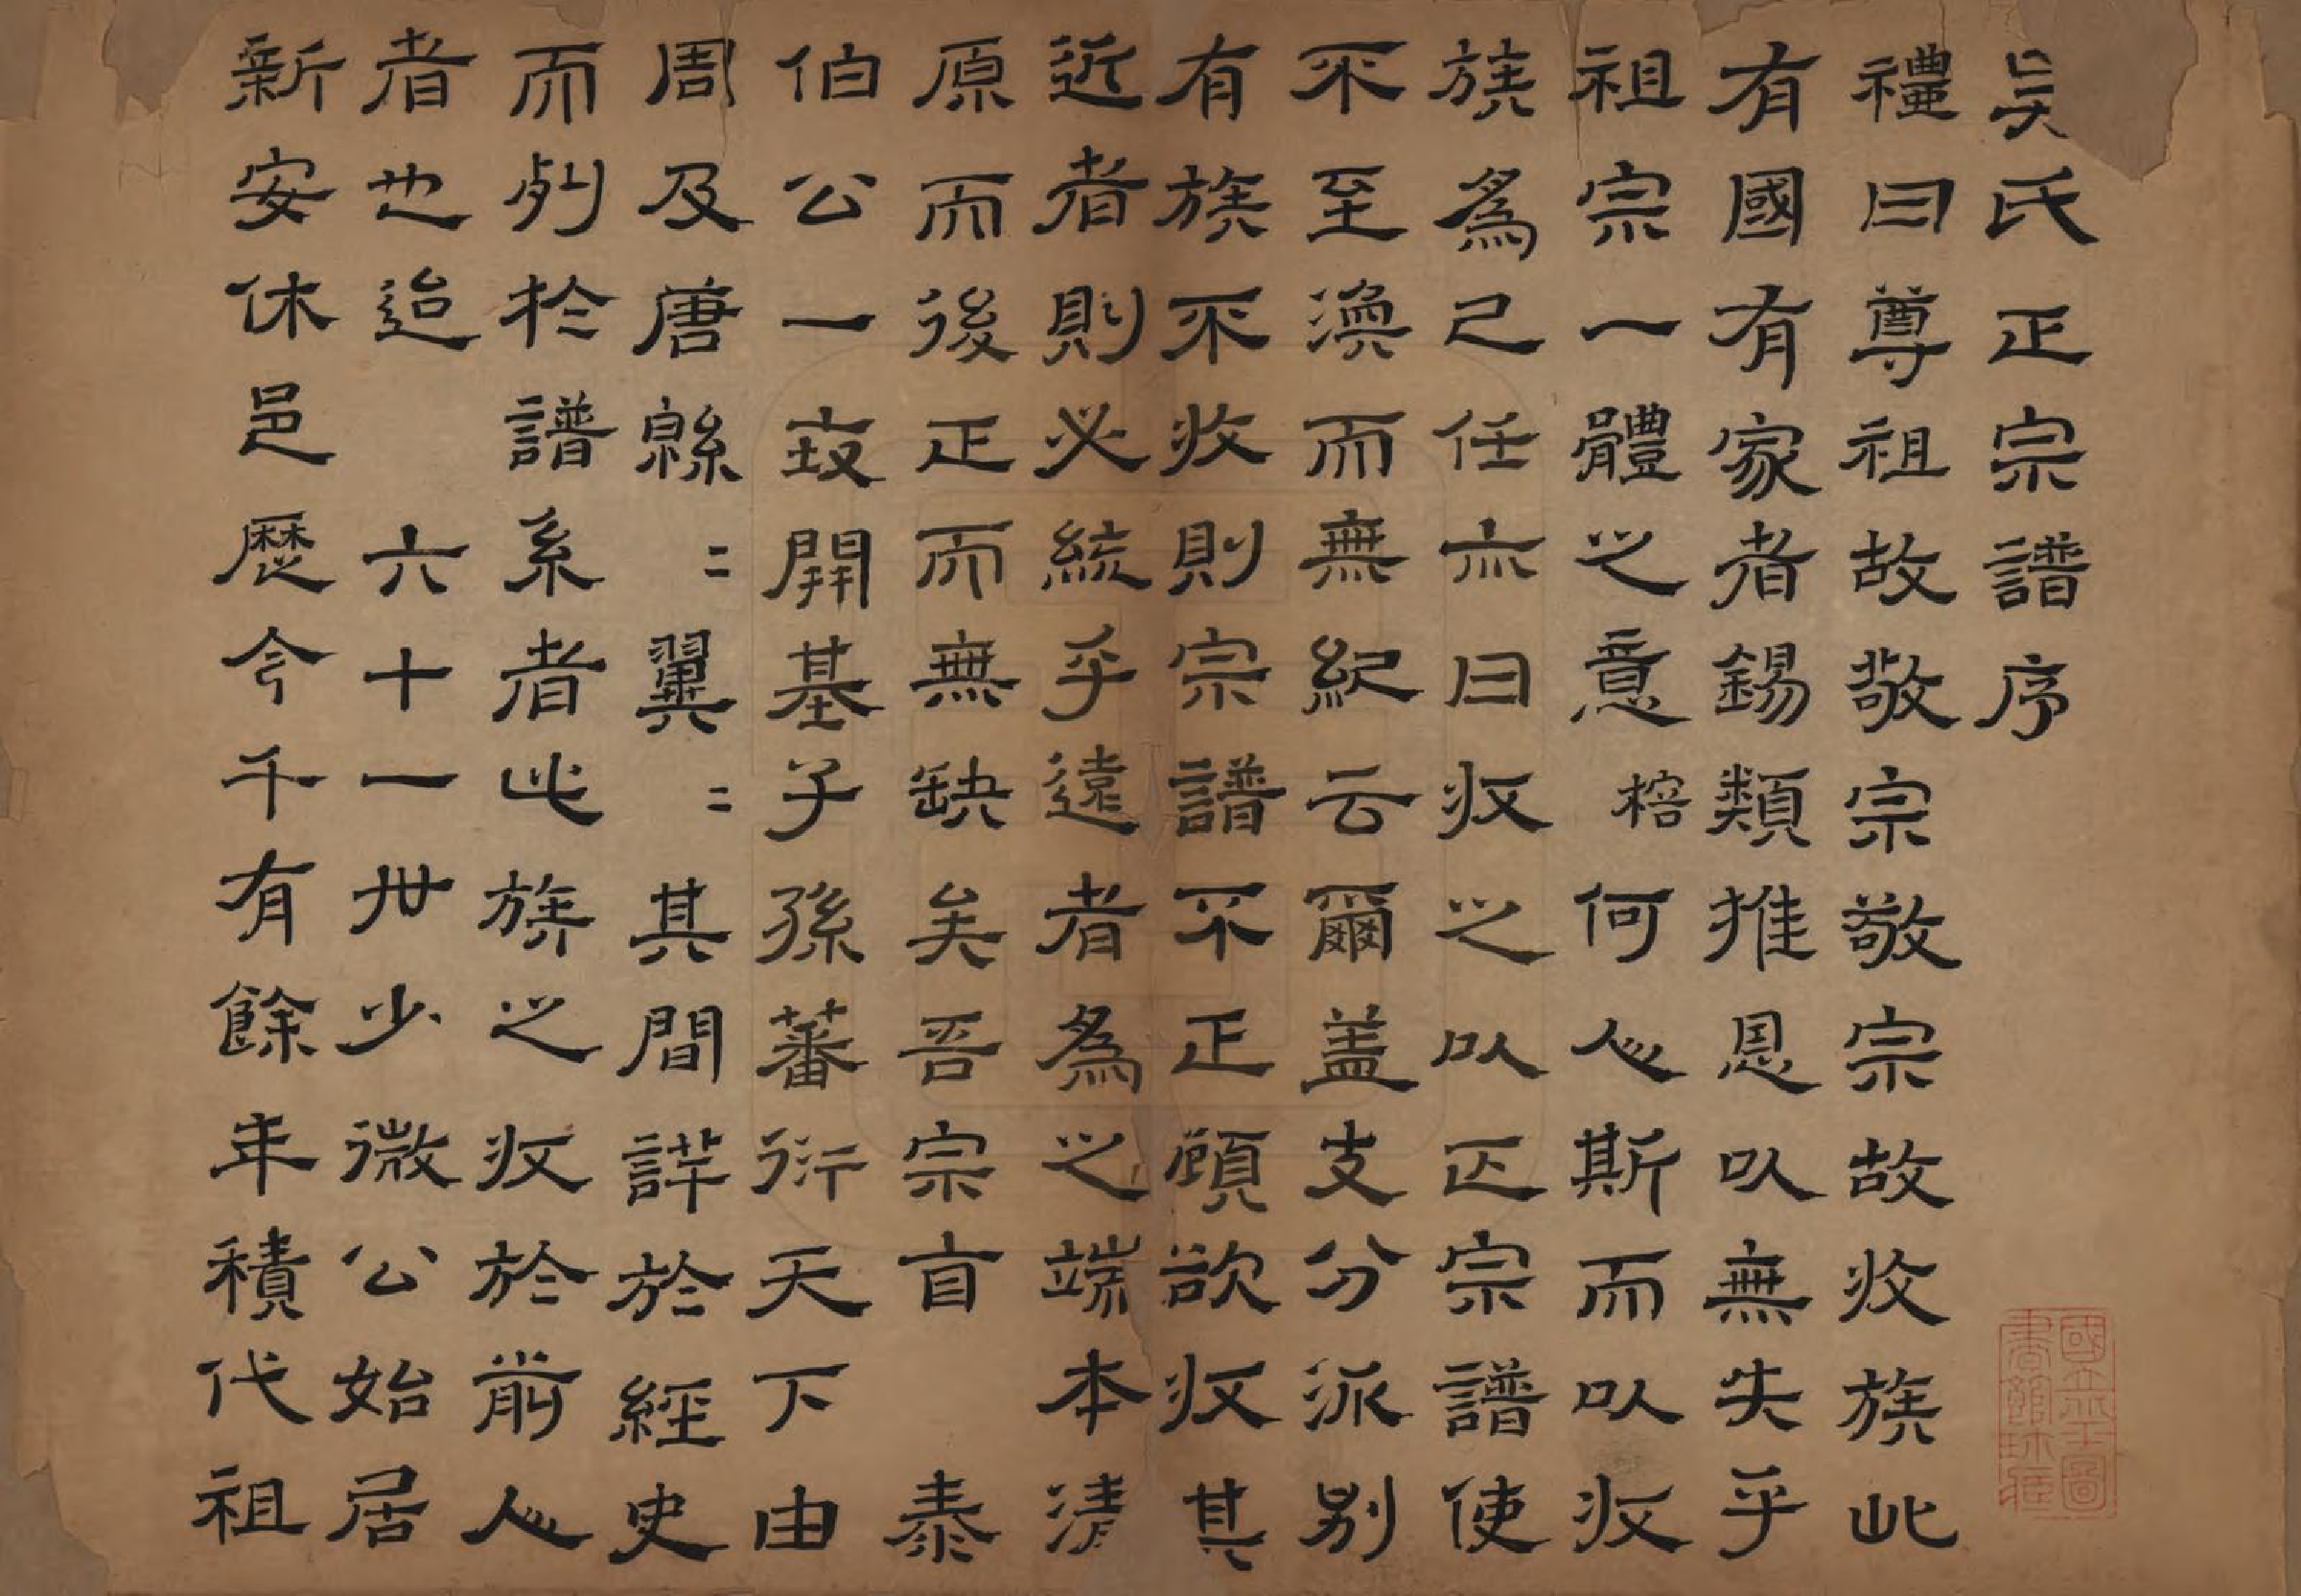 吳氏正宗譜序
禮曰尊祖故敬宗敬宗故收族此
有國有家者錫類推恩以無失乎
祖宗一體之意榕何人斯而以收
族為己任亦曰收之以正宗譜使
不至渙而無紀云爾盖支分派別
有族不收則宗譜不正顧欲收其
近者則必統乎遠者為之端本清
原而後正而無缺矣吾宗自 泰
伯公一開基子孫蕃衍天下由
周及唐緜〻翼〻其間詳於經史
而列於譜系者此族之收於前人
者也迨 六十一世少微公始居
新安休邑歷今千有餘年積代祖
國立北平圖
書館珍藏